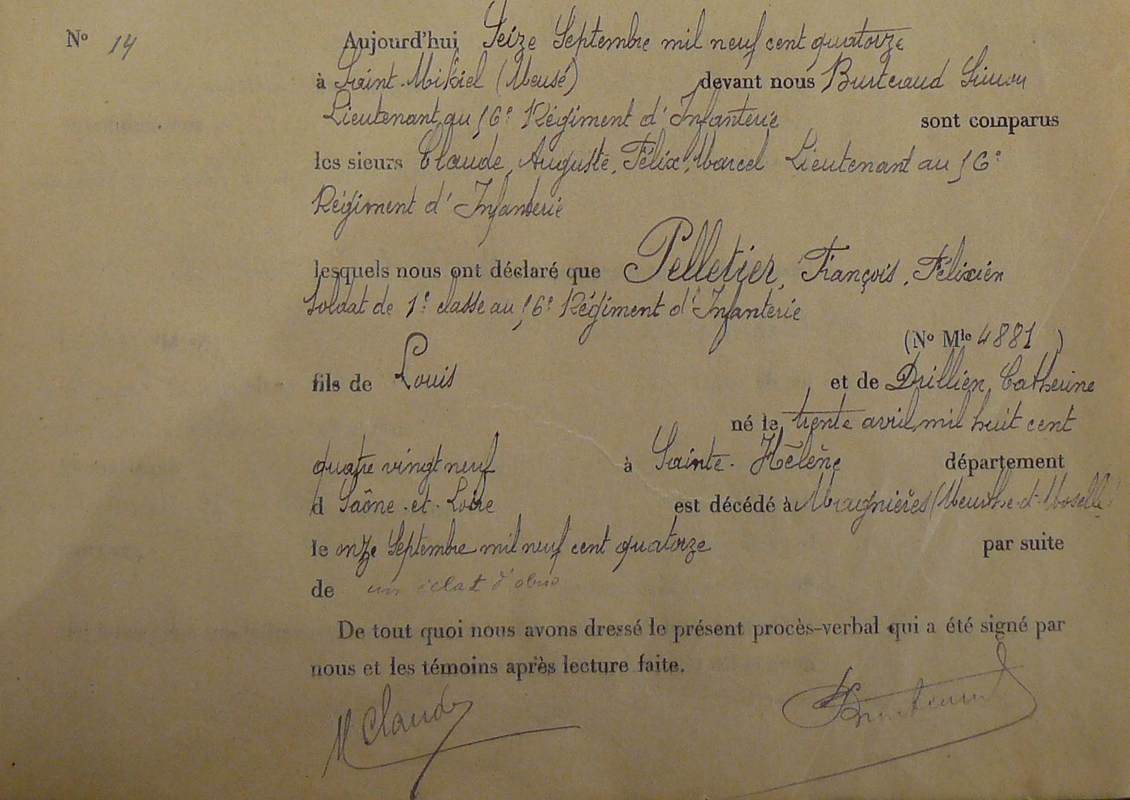 N° 14
Aujourd'hui Seize Septembre mil neuf cent quatorze
à Saint-Mihiel (Meuse) devant nous Burteraud Simon
Lieutenant au 16e Régiment d'Infanterie sont comparus
les sieurs Claude, Auguste, Félix, Marcel Lieutenant au 16e
Régiment d'Infanterie
lesquels nous ont déclaré que Pelletier, François, Félixien
Soldat de 1e classe au 16e Régiment d'Infanterie
(N° Mle 4881 )
fils de Louis et de Drillien, Catherine
né le trente avril mil huit cent
quatre vingt neuf à Sainte-Hélène département
d Saône-et-Loire est décédé à Magnières (Meurthe-et-Moselle
le onze Septembre mil neuf cent quatorze par suite
de un éclat d'obus
De tout quoi nous avons dressé le présent procès-verbal qui a été signé par
nous et les témoins après lecture faite.
M Claude